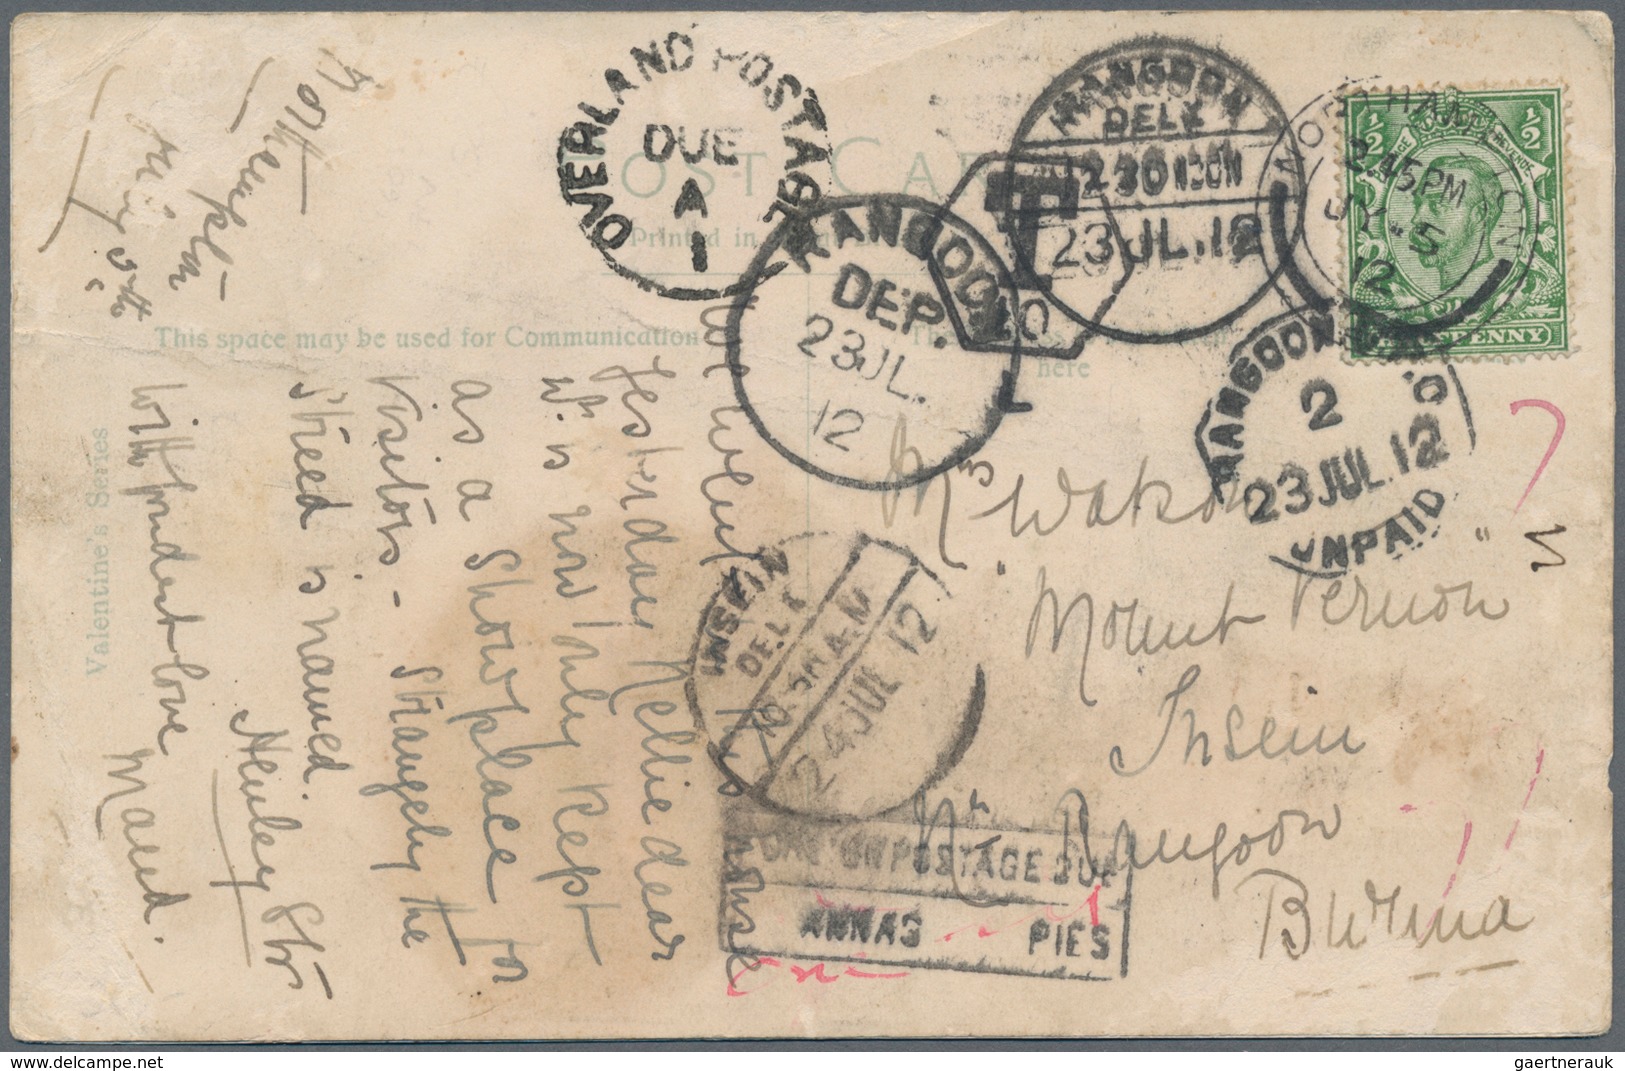 POST CARD
This space may be used for Communication
here
Valentine's Series
OVERLAND POSTAGE
DUE
A
1
RANGOON
DEP.
23 JL.
12
T
20
RANGOON
DELY
2.30 NOON
23 JL. 12
NORTHAMPTON
2.45 PM
JY 5
12
HALFPENNY
RANGOON
2
23 JUL. 12
UNPAID
INSEIN
DELY
10.30 A.M
24 JUL 12
POSTAGE DUE
ANNAS PIES
one
Northampton
We went
Yesterday Nellie dear
it is now only kept
as a Show place for
Visitors - Strangely the
Street is named
Henley Str
with fondest love
Maud.
Mrs Watson
"Mount Vernon"
Insein
Nr Rangoon
Burma